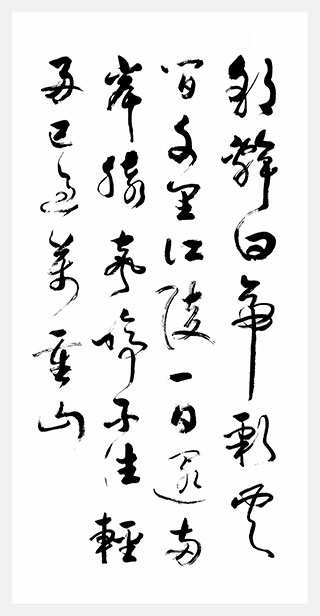 朝辭白帝彩雲
間千里江陵一日還兩
岸猿聲啼不住輕
舟已過萬重山